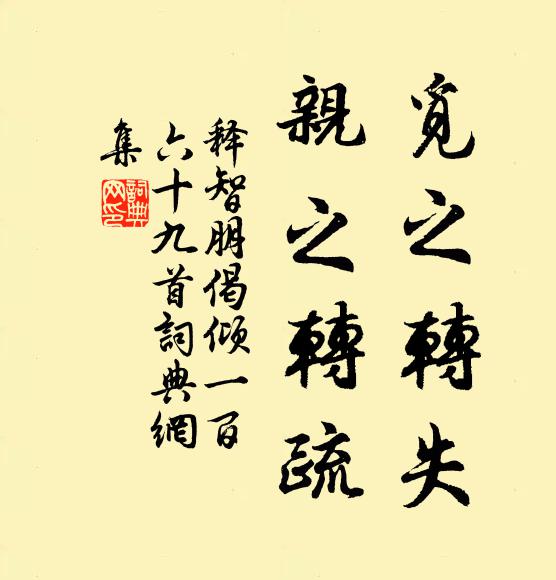 覓之轉失
親之轉疏
释智朋偈傾一百
六十九首詞典網
集
詞典
网印